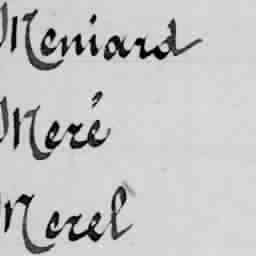 Meniard
Meré
Merel